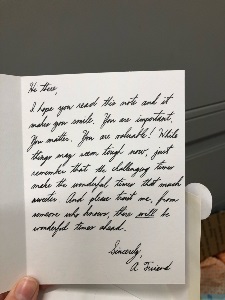 Hi there,
I hope you read this note and it
makes you smile. You are important.
You matter. You are valuable! While
things may seem tough now, just
remember that the challenging times
make the wonderful times that much
sweeter. And please trust me, from
someone who knows, there will be
wonderful times ahead.
Sincerely,
A Friend